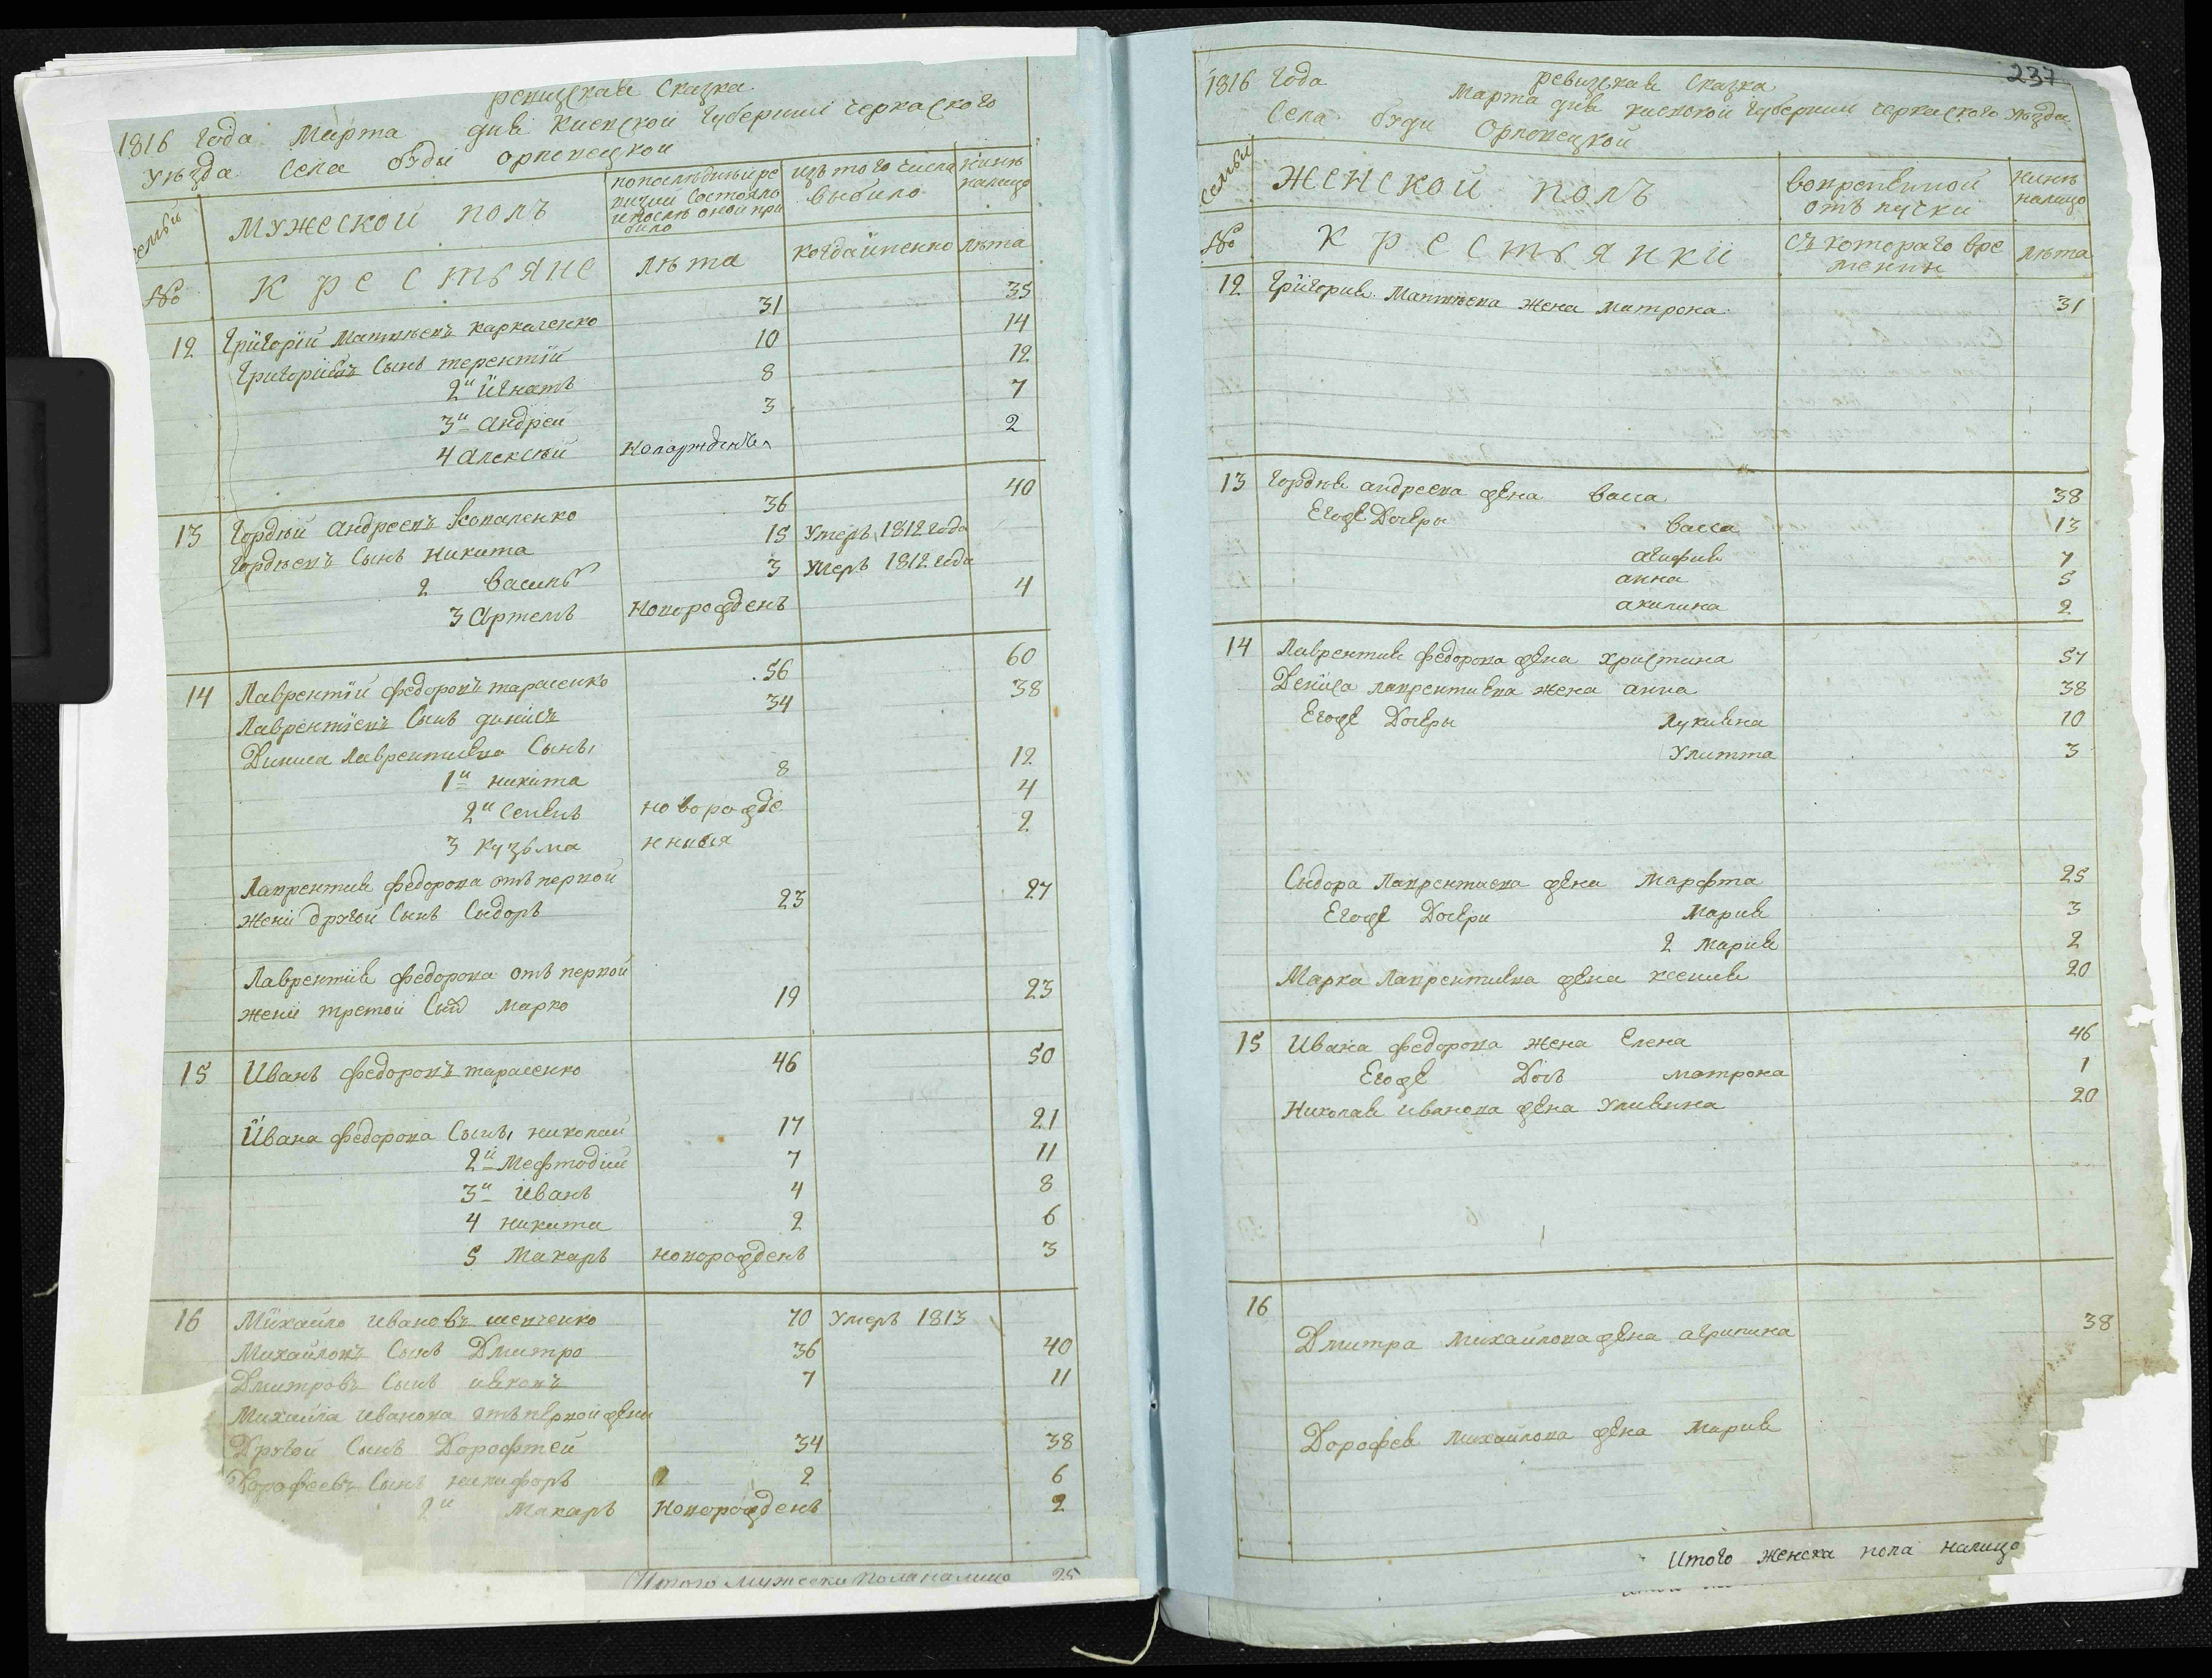 ревизская Сказка
1816 года Марта дня Киевской губернии Черкаского
уѣзда Села буды орловецкой
Семьи
мужеской полъ
попослѣднѣй ре
визии Состояло
ипослѣ оной при
было
изъ того числа
выбыло
нинѣ
налицо
№
крестьяне
лѣта
когдаименно
лѣта
12 Григорїй Матвѣевъ Каркаченко 31 35
Григорїевъ Сынъ терентїй 10 14
2й Игнатъ 8 12
3й андрей 3 7
4 алексѣй 2
13 Гордѣй андреевъ Коваленко 36 40
Гордѣевъ Сынъ Никита 15 Умеръ 1812 года
2 василь 3 умеръ 1812 года
3 Артемъ новорожденъ 4
14 Лаврентїй федоровъ тарасенко 56 60
Лаврентїевъ Сынъ динисъ 34 38
Диниса Лаврентиева Сынъ,
1й никита 8 12
2й Семенъ новорожде 4
3 Кузьма нныя 2
Лаврентия федорова отъ первой
жени другой Сынъ Сидоръ 23 27
Лаврентия федорова отъ первой
жени третой Сынъ марко 19 23
15 Иванъ федоровъ тарасенко 46 50
Ивана федорова Сынъ, николай 17 21
2й Мефтодий 7 11
3й иванъ 4 8
4 никита 2 6
5 Макаръ новорожденъ 3
16 Михайло ивановъ шевченко 70 умеръ 1813
Михайловъ Сынъ Дмитро 36 40
Дмитровъ Сынъ яковъ 7 11
Михайла иванова отъ первой жены
Другой Сынъ Дорофтей 34 38
Дорофеевъ Сынъ никифоръ 2 6
2й Макаръ новорожденъ 2
Итого мужеска пола налицо 25
237
ревизская Сказка
1816 года Марта дня киевской губернии черкаского уѣзда
Села буди Орловецкой
Семьи
женской полъ
вовременной
отъ лучки
нинѣ
налицо
№
крестьянки
съ котораго вре
мении
лѣта
12 Григория Матвѣева жена матрона 31
13 Гордѣя андреева жена васса 38
Егоже Дочеры васса 13
агафия 7
анна 5
акилина 2
14 Лаврентия федорова жена христина 57
Дениса лаврентиева жена анна 38
Егоже Дочеры Лукияна 10
Улитта 3
Сидора Лаврентиева жена Марфта 25
Егоже Дочери Мария 3
2 мария 2
Марка Лаврентиева жена ксения 20
15 Ивана федорова жена Елена 46
Егоже Дочь матрона 1
Николая иванова жена Улияна 20
16
Дмитра Михайлова жена агрипина 38
Дорофея Михайлова жена мария
Итого женска пола налицо